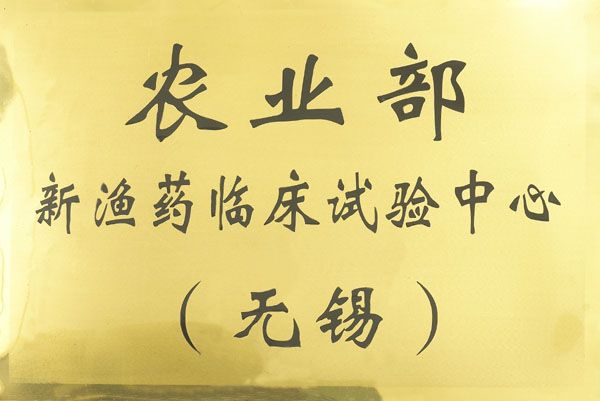 农业部
新渔药临床试验中心
（无锡）